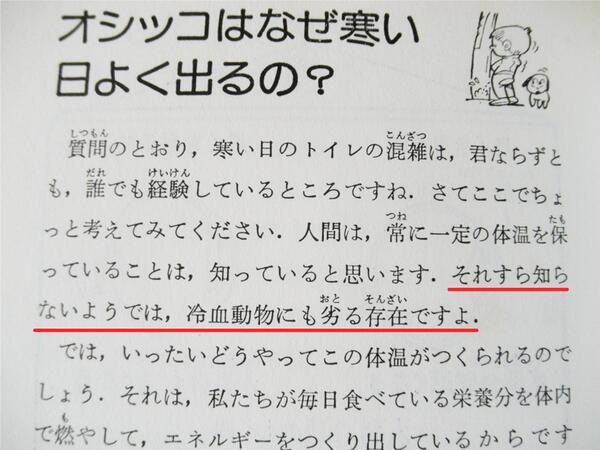 オシッコはなぜ寒い
日よく出るの？
質問のとおり，寒い日のトイレの混雑は，君ならずと
も，誰でも経験しているところですね．さてここでちょ
っと考えてみてください．人間は，常に一定の体温を保
っていることは，知っていると思います．それすら知ら
ないようでは，冷血動物にも劣る存在ですよ．
では，いったいどうやってこの体温がつくられるので
しょう．それは，私たちが毎日食べている栄養分を体内
で燃やして，エネルギーをつくり出しているからです